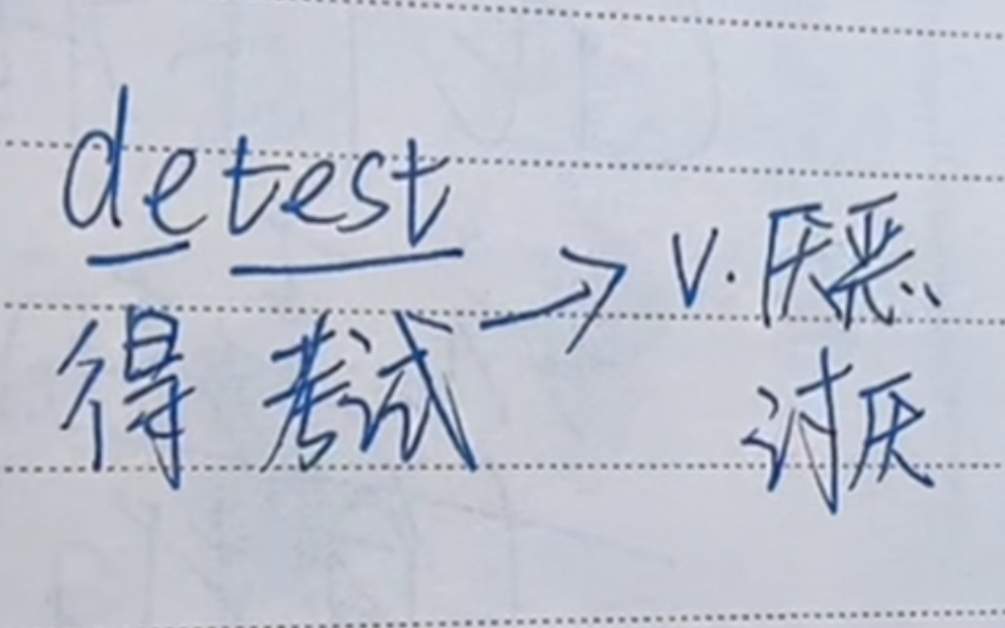 detest
得 考试 → v. 厌恶、
讨厌